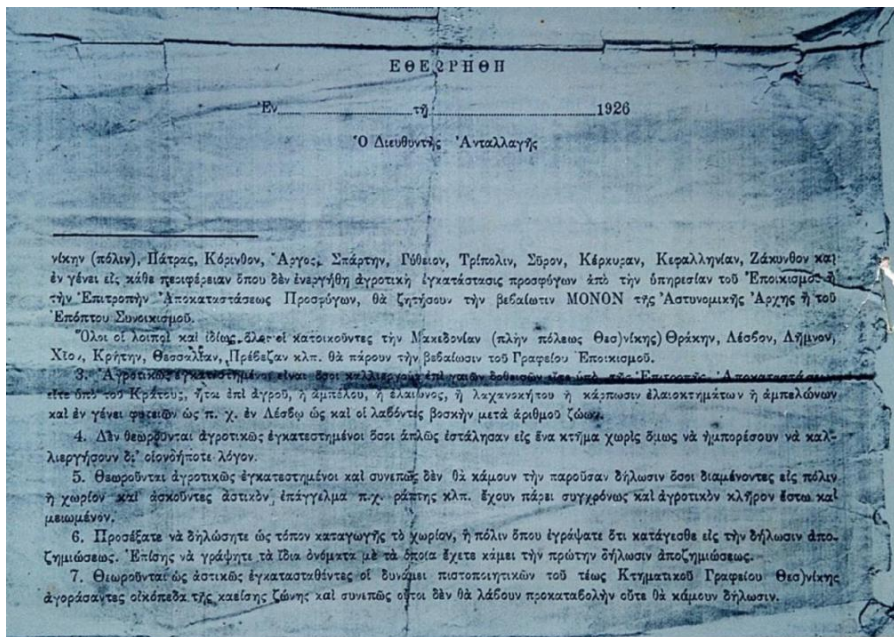 ΕΘΕΩΡΗΘΗ
Ἐν τῇ 1926
Ὁ Διευθυντὴς Ἀνταλλαγῆς
νίκην (πόλιν), Πάτρας, Κόρινθον, Ἄργος, Σπάρτην, Γύθειον, Τρίπολιν, Σῦρον, Κέρκυραν, Κεφαλληνίαν, Ζάκυνθον καὶ
ἐν γένει εἰς κάθε περιφέρειαν ὅπου δὲν ἐνεργήθη ἀγροτικὴ ἐγκατάστασις προσφύγων ἀπὸ τὴν ὑπηρεσίαν τοῦ Ἐποικισμοῦ ἢ
τὴν Ἐπιτροπὴν Ἀποκαταστάσεως Προσφύγων, θὰ ζητήσουν τὴν βεβαίωσιν ΜΟΝΟΝ τῆς Ἀστυνομικῆς Ἀρχῆς ἢ τοῦ
Ἐπόπτου Συνοικισμοῦ.
Ὅλοι οἱ λοιποὶ καὶ ἰδίως ὅλοι οἱ κατοικοῦντες τὴν Μακεδονίαν (πλὴν πόλεως Θεσ)νίκης) Θράκην, Λέσβον, Λῆμνον,
Χίον, Κρήτην, Θεσσαλίαν, Πρέβεζαν κλπ. θὰ πάρουν τὴν βεβαίωσιν τοῦ Γραφείου Ἐποικισμοῦ.
3. Ἀγροτικῶς ἐγκατεστημένοι εἶναι ὅσοι καλλιεργοῦν ἐπὶ γαιῶν δοθεισῶν εἴτε ὑπὸ τῆς Ἐπιτροπῆς Ἀποκαταστάσεως
εἴτε ὑπὸ τοῦ Κράτους, ἤτοι ἐπὶ ἀγροῦ, ἢ ἀμπέλου, ἢ ἐλαιῶνος, ἢ λαχανοκήπου ἢ κάρπωσιν ἐλαιοκτημάτων ἢ ἀμπελώνων
καὶ ἐν γένει φυτειῶν ὡς π. χ. ἐν Λέσβῳ ὡς καὶ οἱ λαβόντες βοσκὴν μετὰ ἀριθμοῦ ζώων.
4. Δὲν θεωροῦνται ἀγροτικῶς ἐγκατεστημένοι ὅσοι ἁπλῶς ἐστάλησαν εἰς ἕνα κτῆμα χωρὶς ὅμως νὰ ἠμπορέσουν νὰ καλ-
λιεργήσουν δι' οἱονδήποτε λόγον.
5. Θεωροῦνται ἀγροτικῶς ἐγκατεστημένοι καὶ συνεπῶς δὲν θὰ κάμουν τὴν παροῦσαν δήλωσιν ὅσοι διαμένοντες εἰς πόλιν
ἢ χωρίον καὶ ἀσκοῦντες ἀστικὸν ἐπάγγελμα π.χ. ράπτης κλπ. ἔχουν πάρει συγχρόνως καὶ ἀγροτικὸν κλῆρον ἔστω καὶ
μειωμένον.
6. Προσέξατε νὰ δηλώσητε ὡς τόπον καταγωγῆς τὸ χωρίον, ἢ πόλιν ὅπου ἐγράψατε ὅτι κατάγεσθε εἰς τὴν δήλωσιν ἀπο-
ζημιώσεως. Ἐπίσης νὰ γράψητε τὰ ἴδια ὀνόματα μὲ τὰ ὁποῖα ἔχετε κάμει τὴν πρώτην δήλωσιν ἀποζημιώσεως.
7. Θεωροῦνται ὡς ἀστικῶς ἐγκατασταθέντες οἱ δυνάμει πιστοποιητικῶν τοῦ τέως Κτηματικοῦ Γραφείου Θεσ)νίκης
ἀγοράσαντες οἰκόπεδα τῆς καείσης ζώνης καὶ συνεπῶς οὗτοι δὲν θὰ λάβουν προκαταβολὴν οὔτε θὰ κάμουν δήλωσιν.